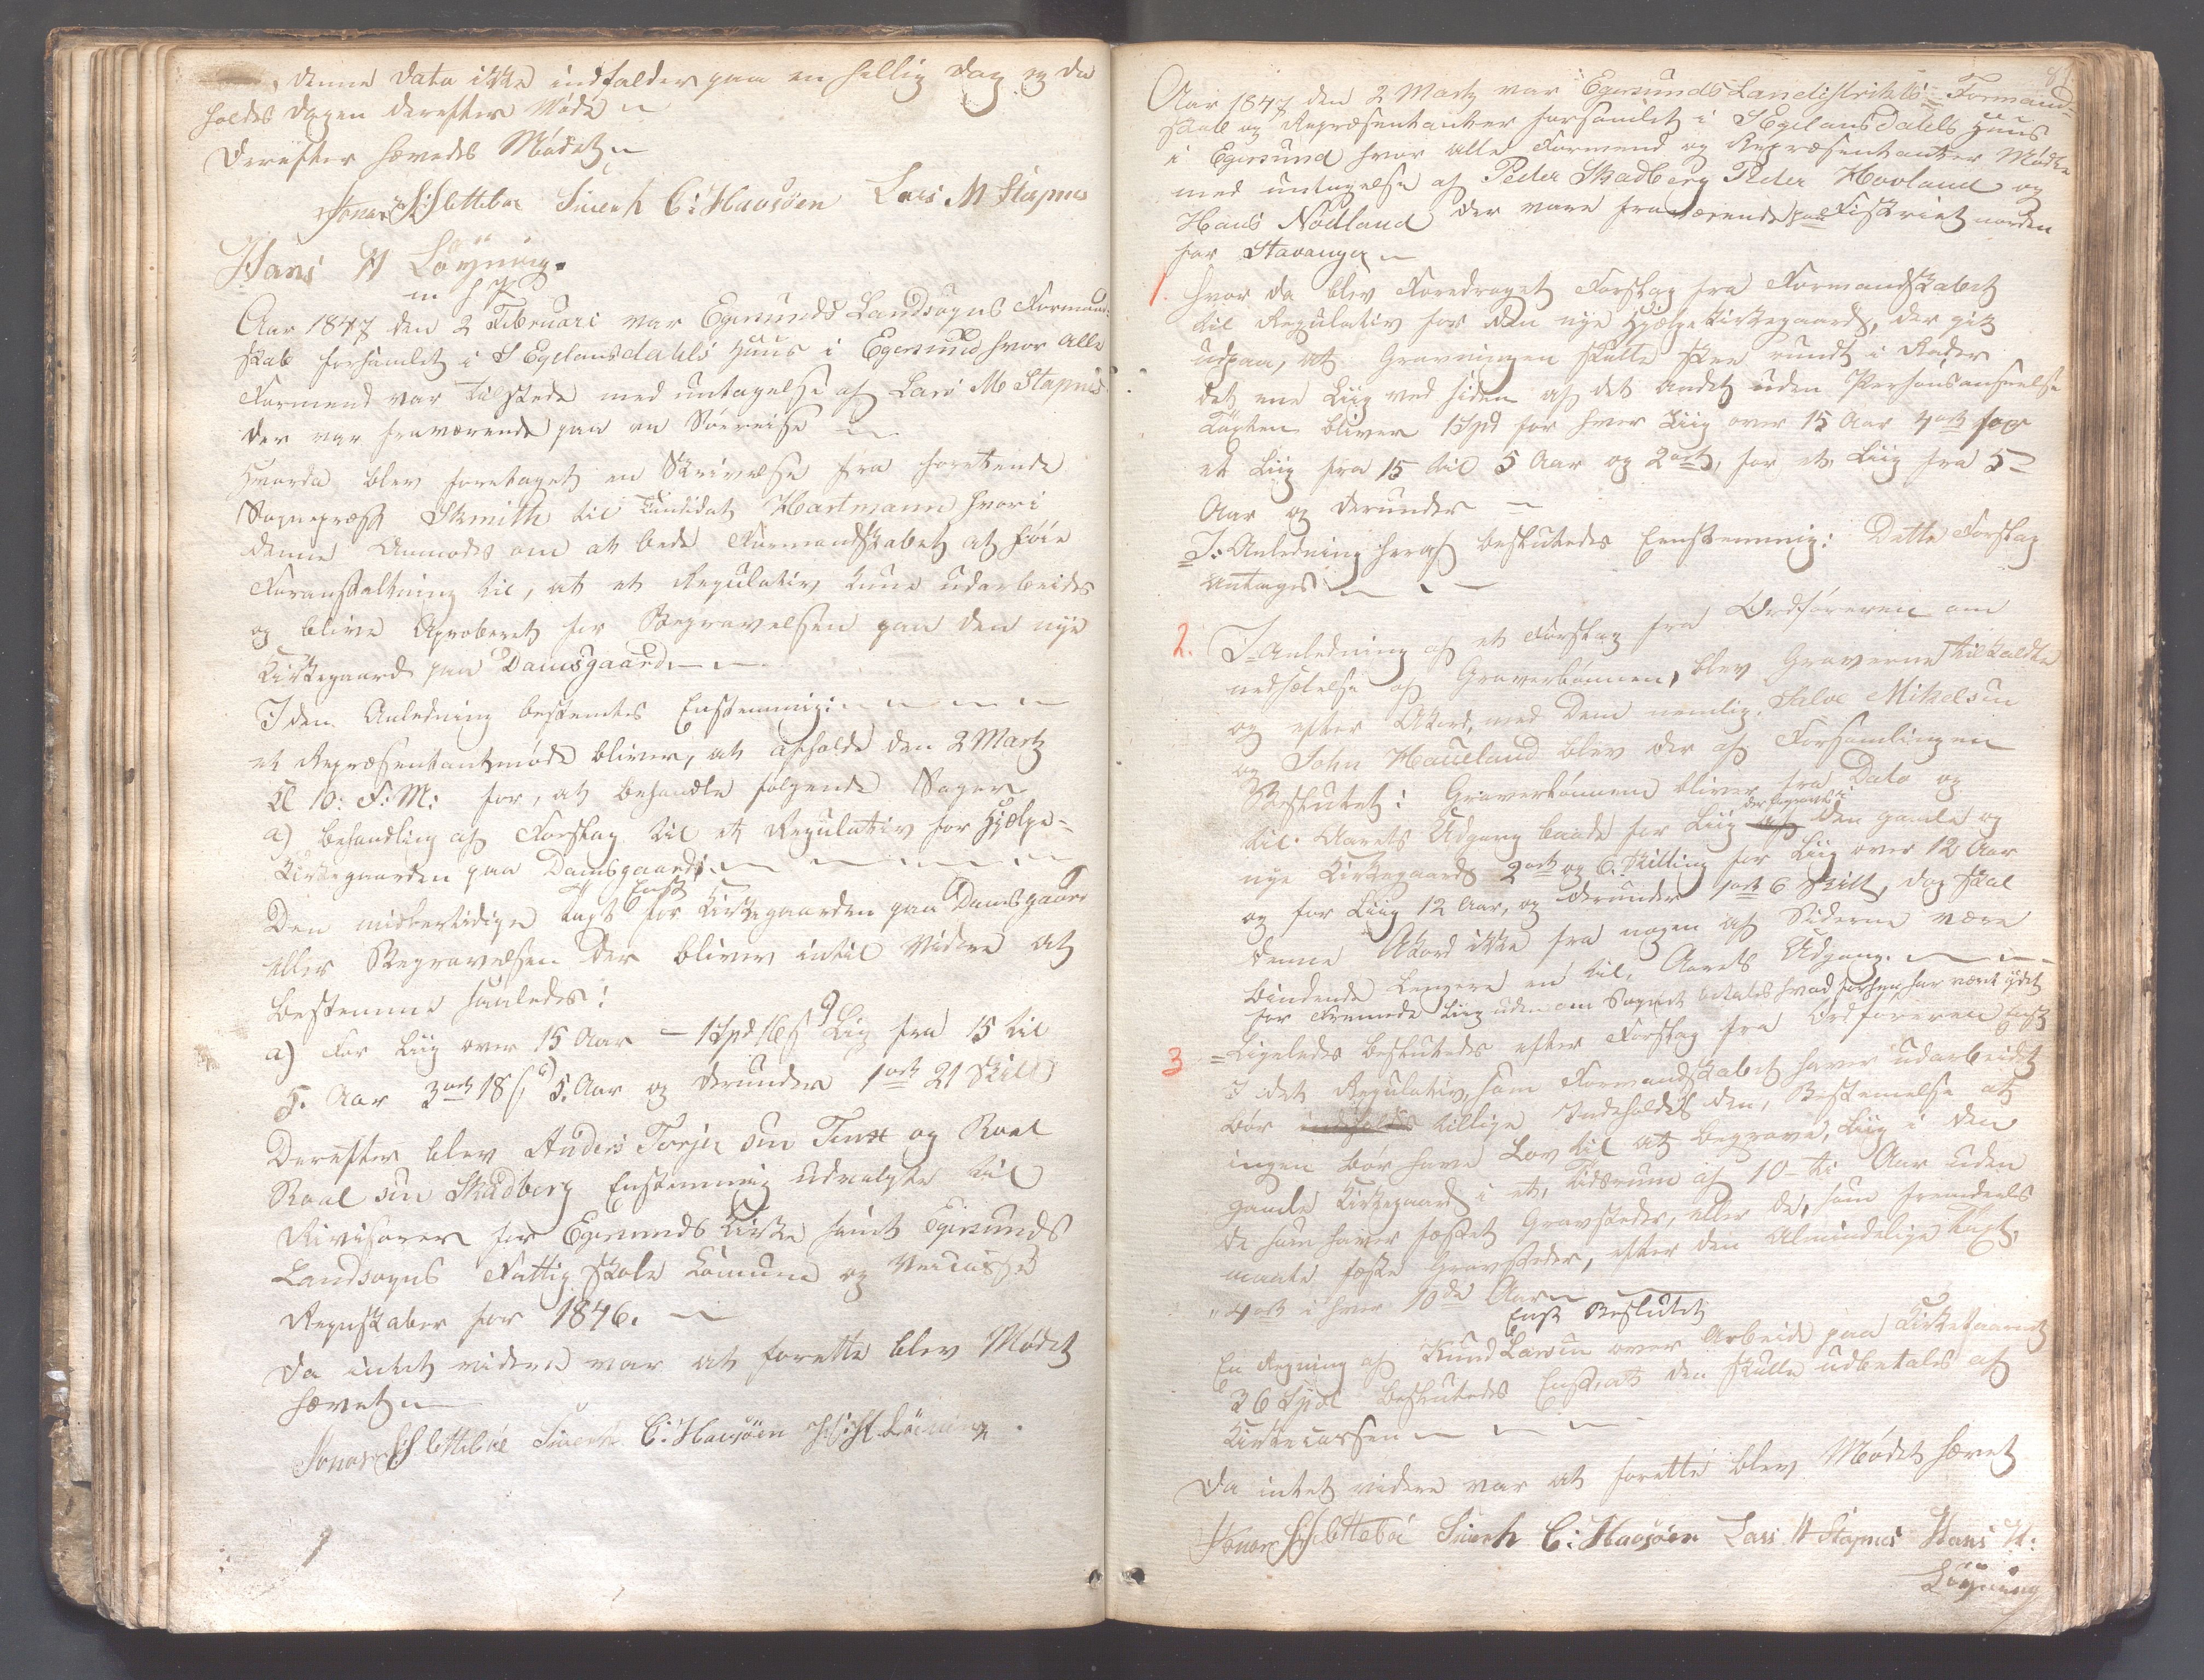 denne Data ikke indfalder paa en hellig Dag og da
holdes Dagen derefter Møde
Derefter hævedes Mødet
Jonas S Slettebøe Sivert C: Hausöen Lars M Stapnes
Hans H Löyning.
m f P
Aar 1847 den 2 Februari var Egersunds Landsogns Formand-
skab forsamlet i S Egelansdahls Huus i Egersund hvor alle
Formænd var tilstede med untagelse af Lars M Stapnes
der var fraværende paa en Søreise
Hvorda blev foretaget en Skrivelse fra
Sognepræst Skmith til Kandidat Hartmann hvori
denne Anmodes om at bede Formandskabet at føie
Foranstaltning til, at et Regulativ kune udarbeides
og blive Aproberet for Begravelsen paa den nye
Kirkegaard paa Damsgaard
I den Anledning bestemtes Enstemmig:
et Repræsentantmøde bliver, at afholde den 2 Martz
Kl 10: F: M: for, at behandle følgende Sager
a) behandling af Forslag til et Regulativ for Hjælpe-
Kirkegaarden paa Damsgaard:
Enst
Den midlertidige Taxt for Kirkegaarden paa Damsgaard
eller Begravelsen der bliver intil Videre at
bestemme saaledes:
a) For Liig over 15 Aar – 1 Spd 16 s Liig fra 15 til
5. Aar 3 ort 18 s 5. Aar og derunder 1 ort 21 Skill
Derefter blev Anders Torjer sen Tent og Roal
Roal sen Skadberg Enstemmig udvalgte til
Rivisorer for Egersunds Kirke samt Egersunds
Landsogns Fattig Skole Comune og
Regnskaber for 1846.
Da intet videre var at forrette blev Mødet
hævet
Jonas S Slettebøe Sivert C: Hausöen H: H Löining
81.
Aar 1847 den 2 Martz var Egersunds Landistrikts Formand-
skab og Repræsentanter forsamlet i S Egelansdahls Huus
i Egersund hvor alle Formend og Repræsentanter Mødte
med untagelse af Peder Skadberg Peder Hovland og
Hans Nodland der vare fraværende paa Fiskriet norden
for Stavanger
1. Hvor da blev Foredraget Forslag fra Formandskabet
til Regulativ for den nye Hjælpekirkegaard, der gik
udpaa, at Gravningen skulle skee rundt i Rader
det ene Liig ved siden af det andet uden Personsanseelse
Taxten bliver 1 Spd for hver Liig over 15 Aar 4 ort for
et Liig fra 15 til 5 Aar og 2 ort, for et Liig fra 5
Aar og derunder
I Anledning heraf besluttedes Eenstemmig: Dette Forslag
Antages
2. I Anledning af et Forslag fra Ordføreren om
nedsættelse af Graverlønnen, blev Graverne tilkaldte
og efter Akord, med dem nemlig. Salve Mikelsen
og John Haueland blev der af Forsamlingen
Besluttet: Graverlønnen bliver fra Dato og
der begraves i
til Aarets Udgang baade for Liig af den gamle og
nye Kirkegaard 2 ort og 6. Skilling for Liig over 12 Aar
og for Liig 12 Aar, og derunder 1 ort 6 Skill, dog skal
denne Akord ikke fra nogen af Siderne være
bindende Lengere en til Aarets Udgang.
for Fremmede Liig uden om Sognet betales hvad forhen har været ydet
3 Ligeledes besluttedes efter Forslag fra Ordføreren Enst
I det Regulativ, som Formandskabet haver udarbeidet
bør indholdes tillige Indeholdes den, Bestemelse at
ingen bør have Lov til at begrave, Liig i den
gamle Kirkegaard i et, Tidsrum af 10 ti Aar uden
de som haver fæstet Gravsteder, eller de, som fremdeels
maate fæste Gravsteder, efter den Almindelige Taxt,
4 ort i hver 10de Aar
Enst Beslutet
En Regning af Knud Larsen over Arbeide paa Kirketaarnet
36 Spdl besluttedes Enst, at den skulle udbetales af
Kirkecassen
Da intet videre var at forrette blev Mødet hævet
Jonas S Slettebøe Sivert C: Hausöen Lars M Stapnes Hans H:
Löyning